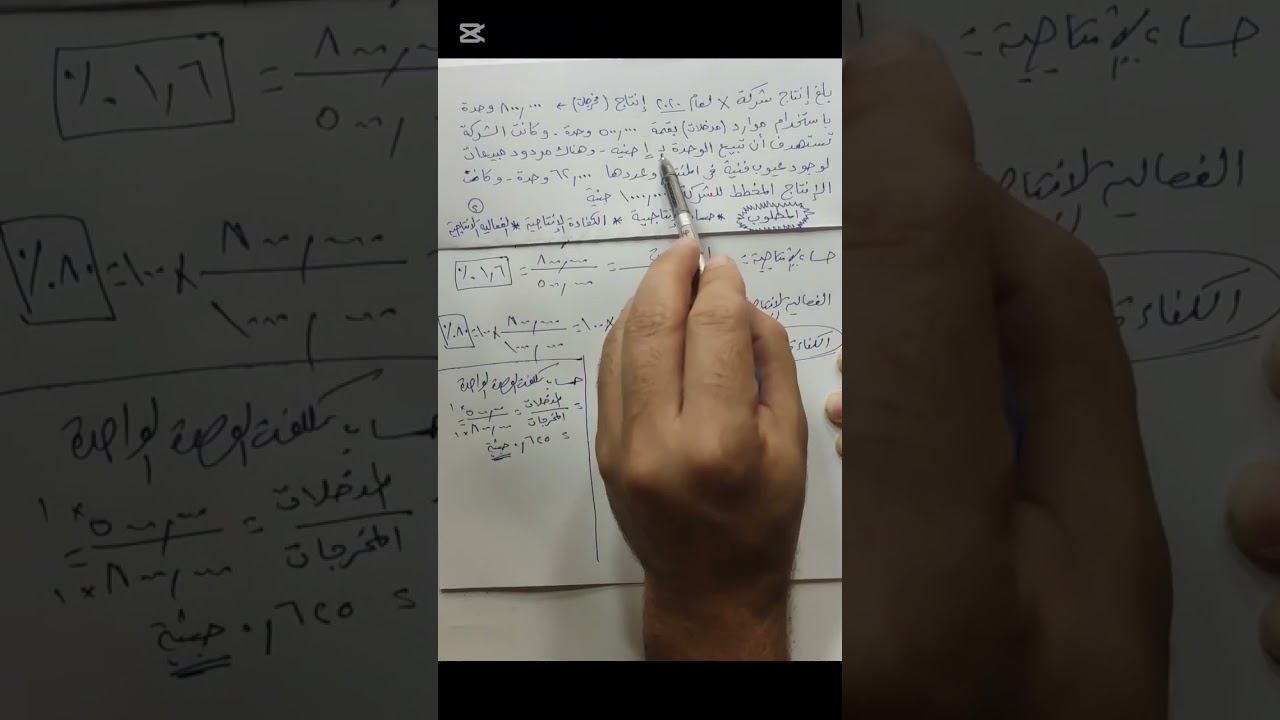 بلغ إنتاج شركة X لعام ٢٠٢٠ إنتاج (مخرجات) ← ٨٠٠,٠٠٠ وحدة
باستخدام موارد (مدخلات) بقيمة ٥٠٠,٠٠٠ وحدة - وكانت الشركة
تستهدف أن تبيع الوحدة بـ ١ جنيه - وهناك مردود مبيعات
لوجود عيوب فنية في وعددها ٦٢,٠٠٠ وحدة - وكان
الإنتاج المخطط للشركة ١٠٠٠,٠٠٠ جنية
المطلوب * حساب الإنتاجية * الكفاءة الإنتاجية * الفعالية الإنتاجية
حساب الإنتاجية = = ٨٠٠,٠٠٠ / ٥٠٠,٠٠٠ = ١,٦ ٪
الفعالية الإنتاجية × ١٠٠ = ٨٠٠,٠٠٠ / ١٠٠٠,٠٠٠ × ١٠٠ = ٨٠ ٪
الكفاءة
حساب تكلفة الوحدة الواحدة
= المدخلات / المخرجات = ٥٠٠,٠٠٠ × ١ / ٨٠٠,٠٠٠ × ١ =
= ٠,٦٢٥ جنية